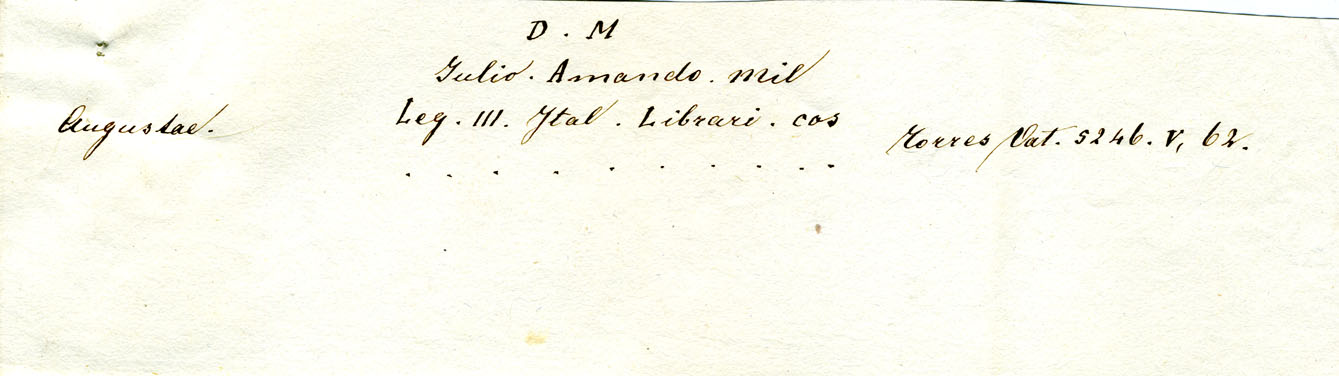 D . M
Julio . Amando . mil
Augustae.
Leg . III . Ital . Librari . cos
Torres Vat. 5246. V, 62.
. . . . . . . . . .